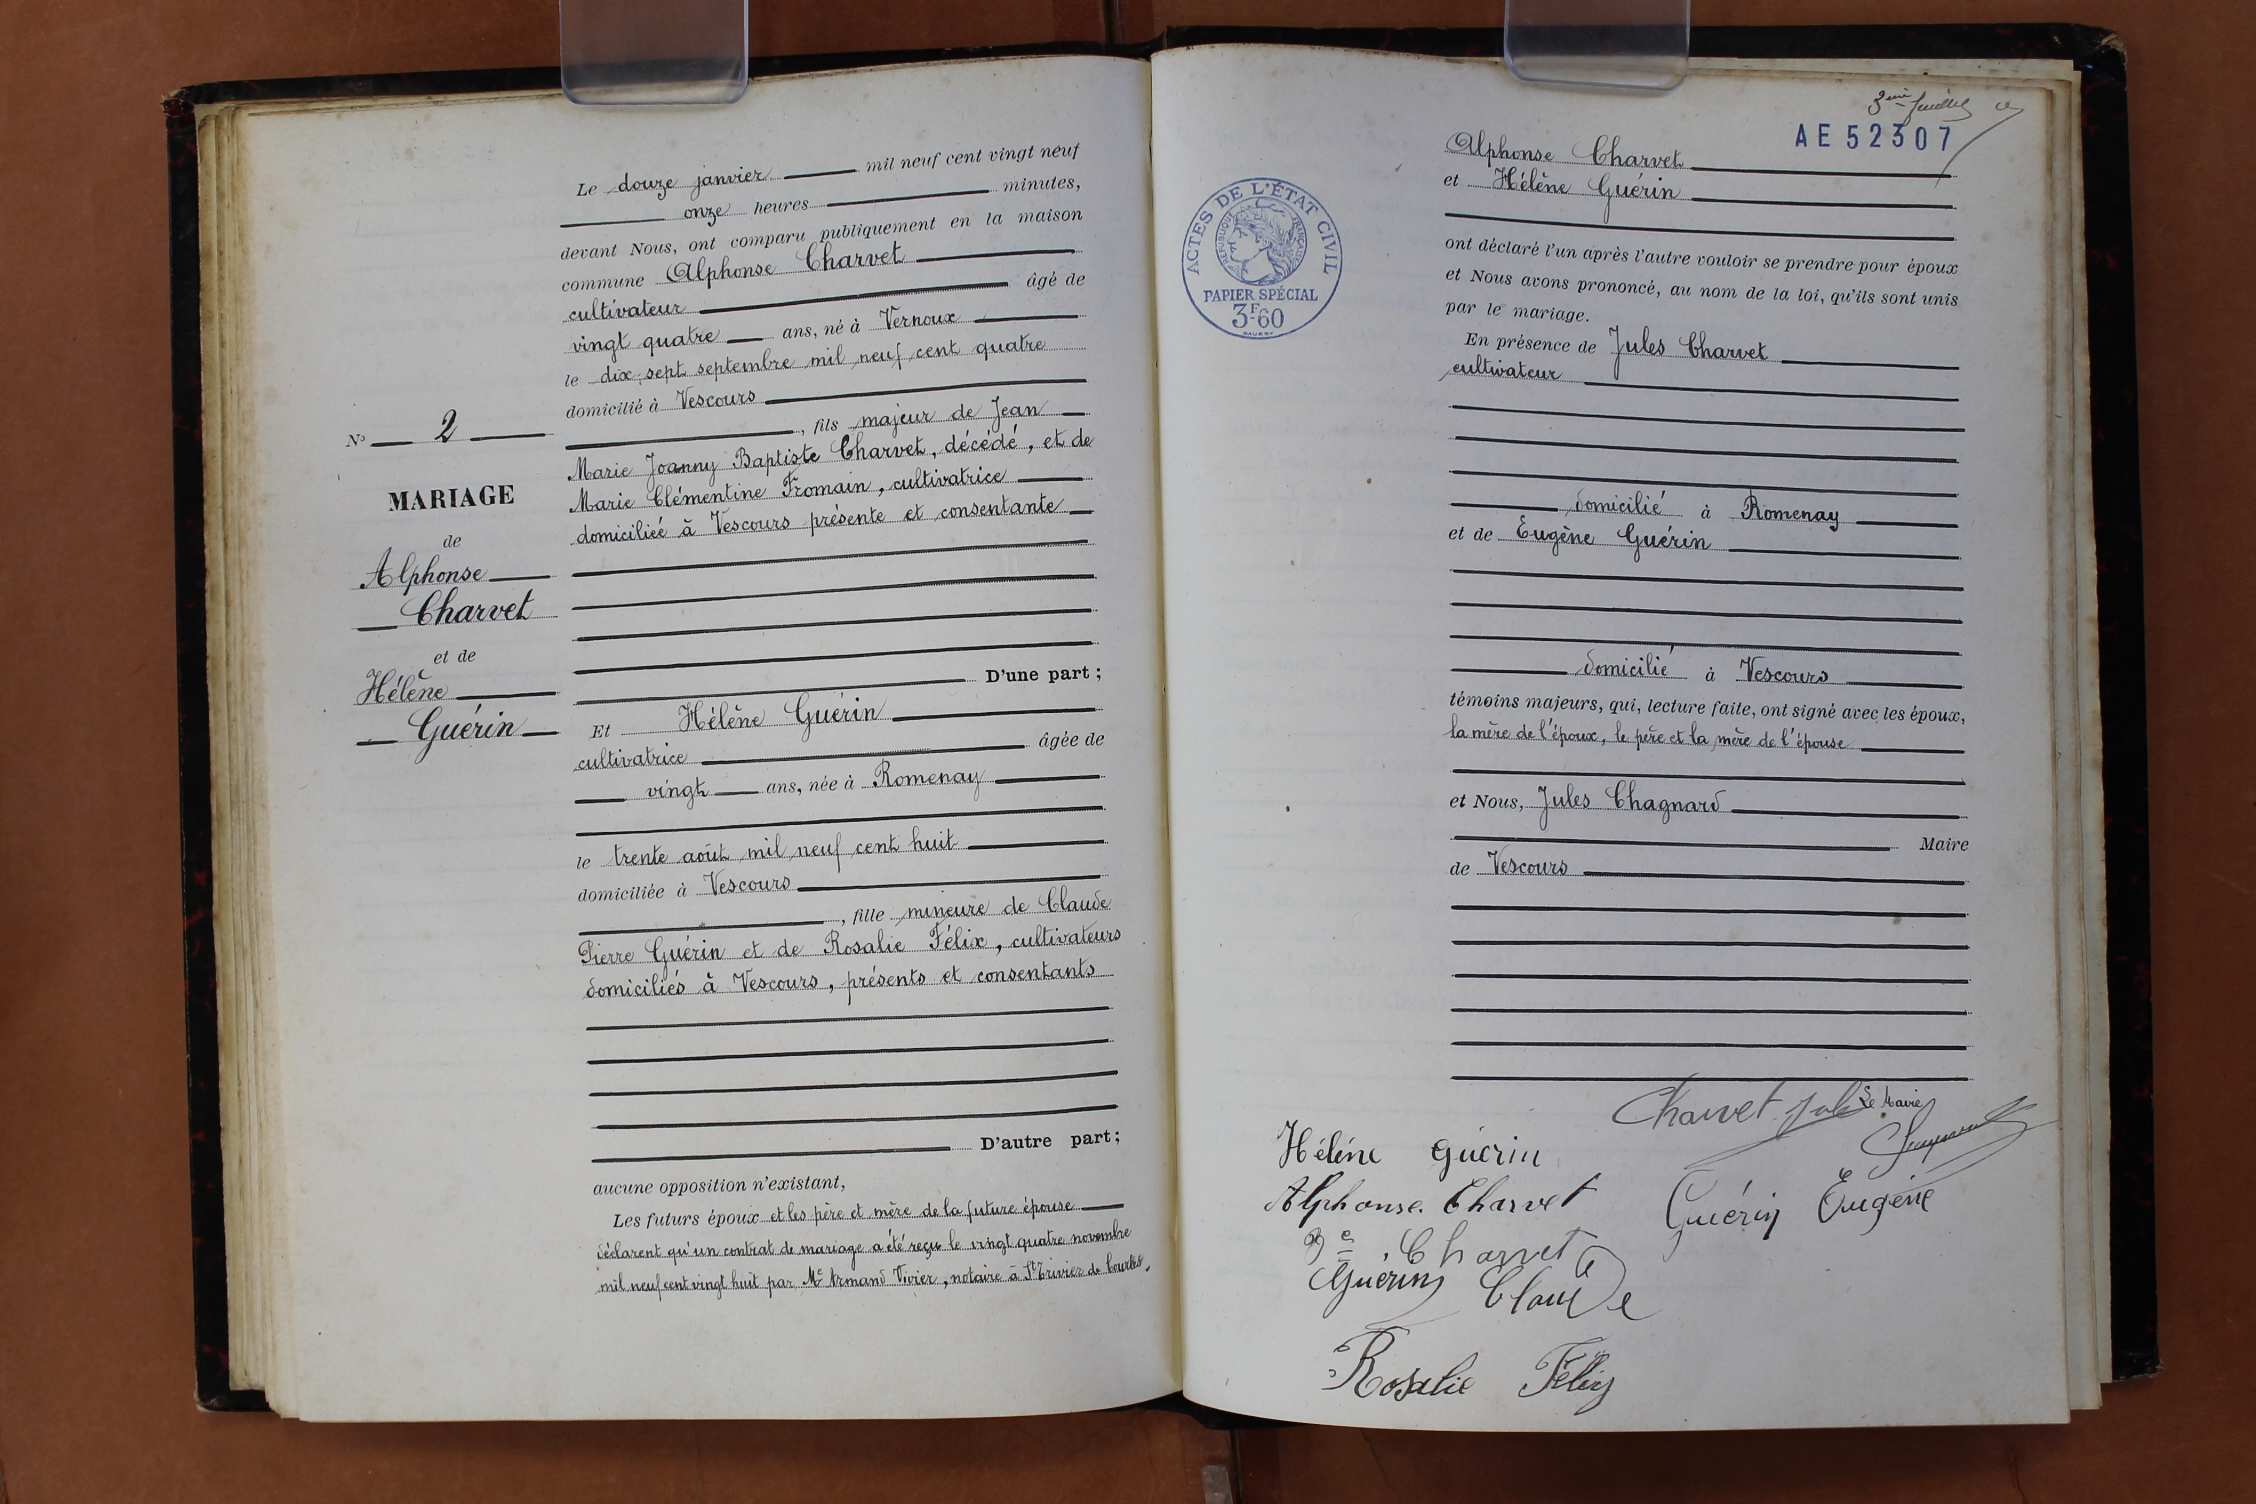 N° 2
MARIAGE
de
Alphonse
Charvet
et de
Hélène
Guérin
Le douze janvier mil neuf cent vingt neuf
onze heures minutes,
devant Nous, ont comparu publiquement en la maison
commune Alphonse Charvet
cultivateur âgé de
vingt quatre ans, né à Vernoux
le dix-sept septembre mil neuf cent quatre
domicilié à Vescours
, fils majeur de Jean
Marie Joanny Baptiste Charvet, décédé, et de
Marie Clémentine Fromain, cultivatrice
domiciliée à Vescours présente et consentante
D'une part;
Et Hélène Guérin
cultivatrice âgée de
vingt ans, née à Romenay
le trente août mil neuf cent huit
domiciliée à Vescours
, fille mineure de Claude
Pierre Guérin et de Rosalie Félix, cultivateurs
domiciliés à Vescours, présents et consentants
D'autre part;
aucune opposition n'existant,
Les futurs époux et les père et mère de la future épouse
déclarent qu'un contrat de mariage a été reçu le vingt quatre novembre
mil neuf cent vingt huit par Me Armand Vivier, notaire à St Trivier de Courtes.
AE52307
ACTES DE L'ÉTAT CIVIL
RÉPUBLIQUE FRANÇAISE
PAPIER SPÉCIAL
3F60
Alphonse Charvet
et Hélène Guérin
ont déclaré l'un après l'autre vouloir se prendre pour époux
et Nous avons prononcé, au nom de la loi, qu'ils sont unis
par le mariage.
En présence de Jules Charvet
cultivateur
domicilié à Romenay
et de Eugène Guérin
domicilié à Vescours
témoins majeurs, qui, lecture faite, ont signé avec les époux,
la mère de l'époux, le père et la mère de l'épouse
et Nous, Jules Chagnard
Maire
de Vescours
Charvet Jules
Le Maire
Hélène Guérin
Alphonse Charvet
Guérin Eugène
Charvet
Guérin Claude
Rosalie Félix